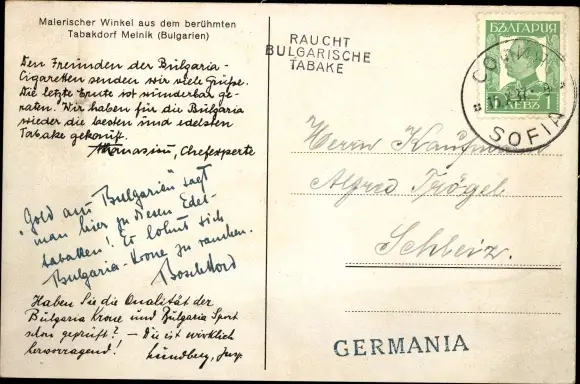 Malerischer Winkel aus dem berühmten
Tabakdorf Melnik (Bulgarien)
Den Freunden der Bulgaria-
Cigaretten senden wir viele Grüße.
Die letzte Ernte ist wunderbar ge-
raten. Wir haben für die Bulgaria
wieder die besten und edelsten
Tabake gekauft.
Athanasiou, Chefexperte
"Gold aus Bulgarien" sagt
man hier zu diesen Edel-
tabaken! Es lohnt sich
Bulgaria-Krone zu rauchen.
Haben Sie die Qualität der
Bulgaria Krone und Bulgaria Sport
schon geprüft? - Die ist wirklich
hervorragend! Lundberg,
RAUCHT
BULGARISCHE
TABAKE
БЪЛГАРИЯ
1 ЛЕВЪ 1
СОФИЯ
SOFIA
Herrn Kaufmann
Alfred Trögel
Schleiz.
GERMANIA